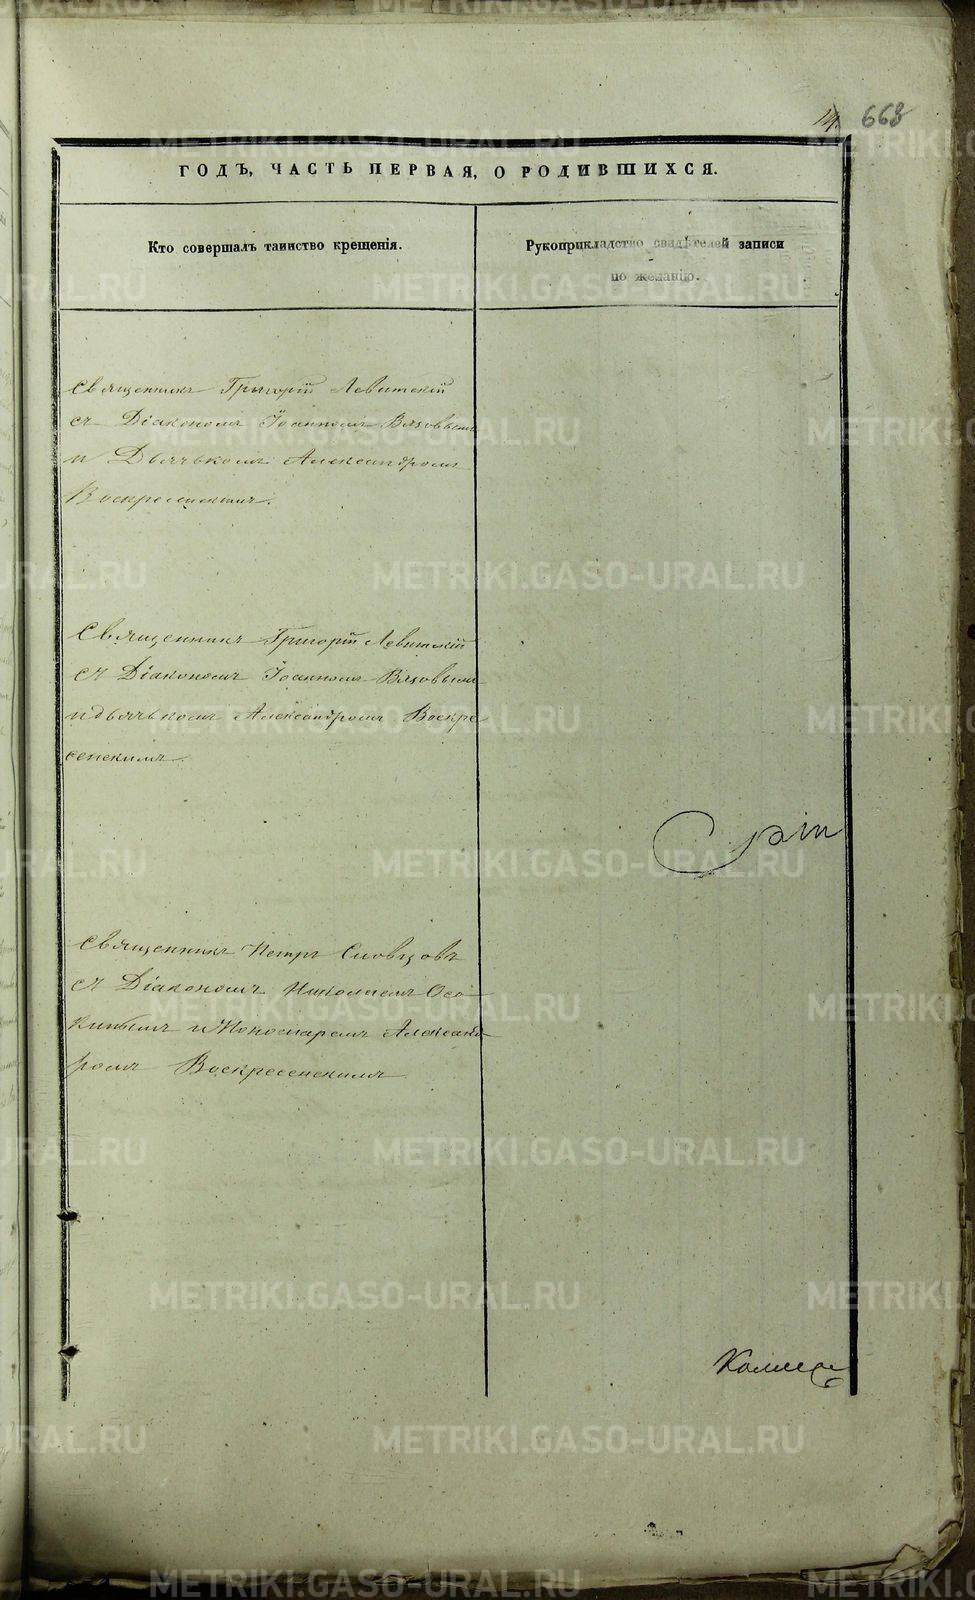 14. 668
ГОДЪ, ЧАСТЬ ПЕРВАЯ, О РОДИВШИХСЯ.
Кто совершалъ таинство крещенія.
Рукоприкладство свидѣтелей записи
по желанію.
Священникъ Григорій Левитскій
съ Діакономъ Іоанномъ Вязовымъ
и Дьячькомъ Александромъ
Воскресенскимъ.
Священникъ Григорій Левитскій
съ Діакономъ Іоанномъ Вязовымъ
и дьячькомъ Александромъ Воскре
сенскимъ.
Священникъ Петръ Словцовъ
съ Діакономъ Николаемъ Осо
кинымъ и Пономаремъ Александ
ромъ Воскресенскимъ
METRIKI.GASO-URAL.RU